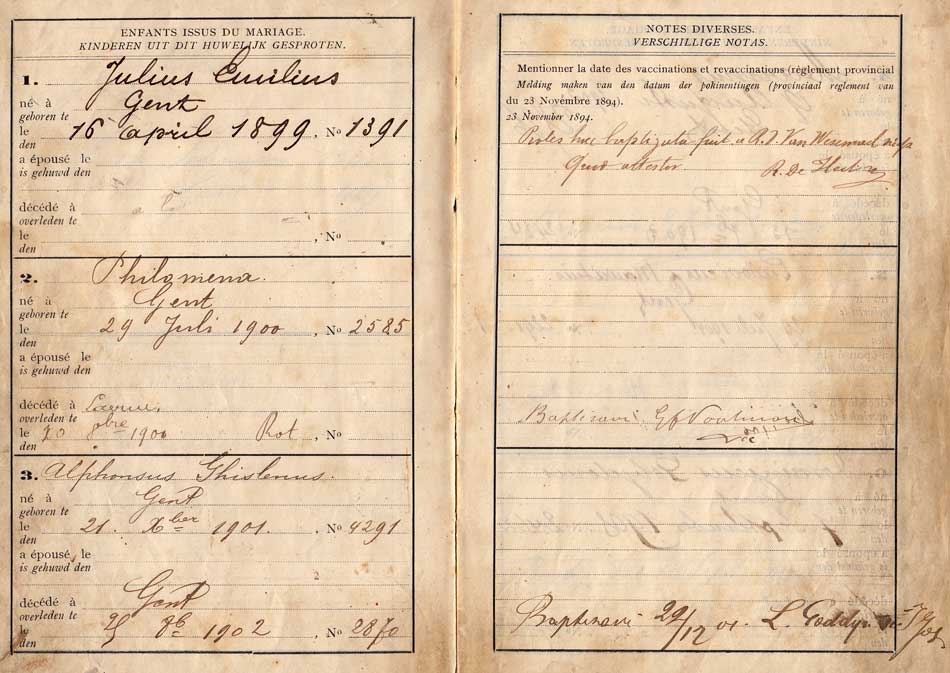 ENFANTS ISSUS DU MARIAGE.
KINDEREN UIT DIT HUWELIJK GESPROTEN.
1. Julius Emilius
né à
geboren te
Gent
le
den
16 april 1899, No 1391
a épousé le
is gehuwd den
décédé à
overleden te
le
den
, No
2. Philomena
né à
geboren te
Gent
le
den
29 Juli 1900, No 2585
a épousé le
is gehuwd den
décédé à
overleden te
le
den
8bre 1900 Rot, No
3. Alphonsus Ghislenus.
né à
geboren te
Gent
le
den
21. Xber 1901. No 4291
a épousé le
is gehuwd den
décédé à
overleden te
Gent
le
den
8b 1902, No 2870
NOTES DIVERSES.
VERSCHILLIGE NOTAS.
Mentionner la date des vaccinations et revaccinations (règlement provincial
Melding maken van den datum der pokinentingen (provinciaal reglement van
du 23 Novembre 1894).
23 November 1894.
Proles haec baptizata fuit a R.D. Van
Quod attestor
R. De
Baptizavi
Baptizavi 22/12 01. L. Goddyn